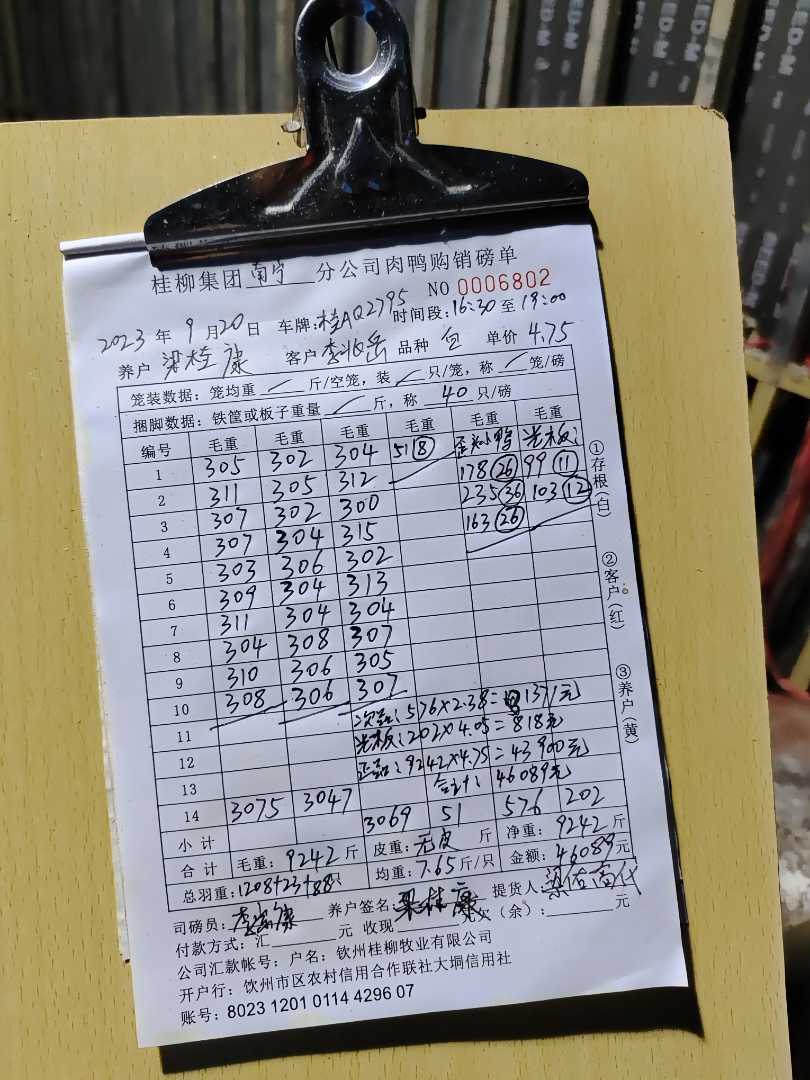 桂柳集团南宁分公司肉鸭购销磅单
NO 0006802
2023年9月20日 车牌:桂AQ2795 时间段:16:30至19:00
养户 梁桂康 客户 李兆岳 品种 白 单价 4.75
笼装数据:笼均重 / 斤/空笼,装 / 只/笼,称 / 笼/磅
捆脚数据:铁筐或板子重量 / 斤,称 40 只/磅
编号 毛重 毛重 毛重 毛重 毛重 毛重
1 305 302 304 51⑧ 歪头小鸭 光板:
2 311 305 312 178(26) 99(11)
3 307 302 300 235(36) 103(12)
4 307 304 315 163(26)
5 303 306 302
6 309 304 313
7 311 304 304
8 304 308 307
9 310 306 305
10 308 306 307
11 次品:576×2.38=1371元
12 光板:202×4.05=818元
13 正品:9242×4.75=43900元
14 合计:46089元
小计 3075 3047 3069 51 576 202
合计 毛重:9242斤 皮重:无皮斤 净重:9242斤
总羽重:1208+23+88只 均重:7.65斤/只 金额:46089元
司磅员: 养户签名:梁桂康 提货人:梁佑高代
付款方式:汇 元 收现 元欠(余): 元
公司汇款帐号:户名:钦州桂柳牧业有限公司
开户行:钦州市区农村信用合作联社大垌信用社
账号:8023 1201 0114 4296 07
①存根(白)
②客户(红)
③养户(黄)